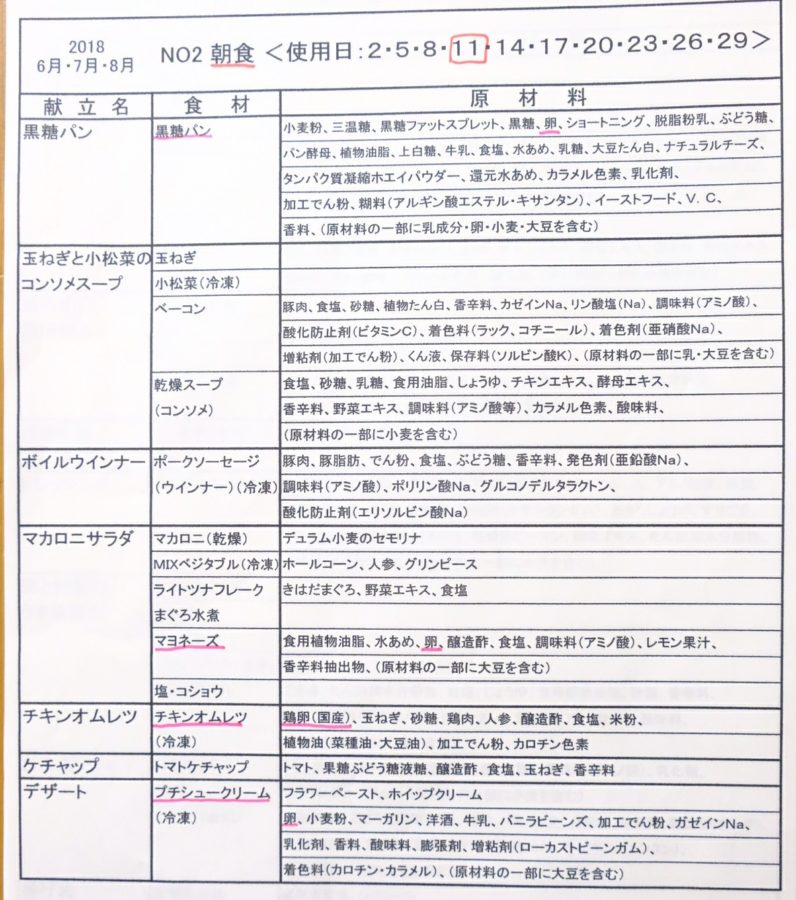 2018
6月・7月・8月
NO2 朝食 ＜使用日：2・5・8・11・14・17・20・23・26・29＞
献立名 食材 原材料
黒糖パン 黒糖パン 小麦粉、三温糖、黒糖ファットスプレット、黒糖、卵、ショートニング、脱脂粉乳、ぶどう糖、
パン酵母、植物油脂、上白糖、牛乳、食塩、水あめ、乳糖、大豆たん白、ナチュラルチーズ、
タンパク質凝縮ホエイパウダー、還元水あめ、カラメル色素、乳化剤、
加工でん粉、糊料（アルギン酸エステル・キサンタン）、イーストフード、V．C、
香料、（原材料の一部に乳成分・卵・小麦・大豆を含む）
玉ねぎと小松菜の 玉ねぎ
コンソメスープ 小松菜（冷凍）
ベーコン 豚肉、食塩、砂糖、植物たん白、香辛料、カゼインNa、リン酸塩（Na）、調味料（アミノ酸）、
酸化防止剤（ビタミンC）、着色料（ラック、コチニール）、着色剤（亜硝酸Na）、
増粘剤（加工でん粉）、くん液、保存料（ソルビン酸K）、（原材料の一部に乳・大豆を含む）
乾燥スープ 食塩、砂糖、乳糖、食用油脂、しょうゆ、チキンエキス、酵母エキス、
（コンソメ） 香辛料、野菜エキス、調味料（アミノ酸等）、カラメル色素、酸味料、
（原材料の一部に小麦を含む）
ボイルウインナー ポークソーセージ 豚肉、豚脂肪、でん粉、食塩、ぶどう糖、香辛料、発色剤（亜鉛酸Na）、
（ウインナー）（冷凍） 調味料（アミノ酸）、ポリリン酸Na、グルコノデルタラクトン、
酸化防止剤（エリソルビン酸Na）
マカロニサラダ マカロニ（乾燥） デュラム小麦のセモリナ
MIXベジタブル（冷凍） ホールコーン、人参、グリンピース
ライトツナフレーク きはだまぐろ、野菜エキス、食塩
まぐろ水煮
マヨネーズ 食用植物油脂、水あめ、卵、醸造酢、食塩、調味料（アミノ酸）、レモン果汁、
香辛料抽出物、（原材料の一部に大豆を含む）
塩・コショウ
チキンオムレツ チキンオムレツ 鶏卵（国産）、玉ねぎ、砂糖、鶏肉、人参、醸造酢、食塩、米粉、
（冷凍） 植物油（菜種油・大豆油）、加工でん粉、カロチン色素
ケチャップ トマトケチャップ トマト、果糖ぶどう糖液糖、醸造酢、食塩、玉ねぎ、香辛料
デザート プチシュークリーム フラワーペースト、ホイップクリーム
（冷凍） 卵、小麦粉、マーガリン、洋酒、牛乳、バニラビーンズ、加工でん粉、ガゼインNa、
乳化剤、香料、酸味料、膨張剤、増粘剤（ローカストビーンガム）、
着色料（カロチン・カラメル）、（原材料の一部に大豆を含む）